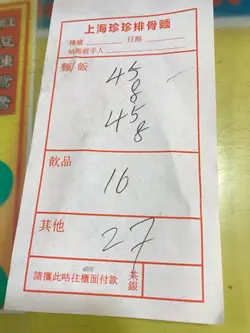 上海珍珍排骨麵
檯號 日期
結賬經手人
麵/飯
45
8
45
8
飲品
16
其他
27
請攜此咭往櫃面付款 茶銀
紅豆涷